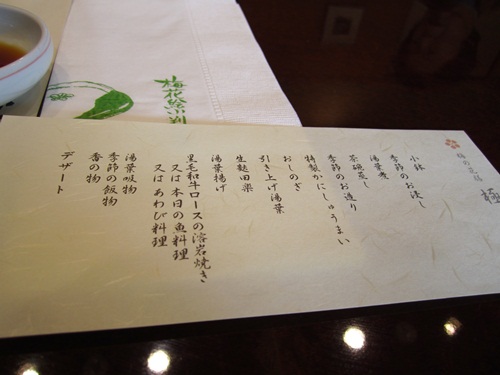 梅の花膳
極
小鉢
季節のお浸し
湯葉煮
茶碗蒸し
季節のお造り
特製かにしゅうまい
おしのぎ
引き上げ湯葉
生麩田楽
湯葉揚げ
黒毛和牛ロースの溶岩焼き
又は本日の魚料理
又はあわび料理
湯葉吸物
季節の飯物
香の物
デザート